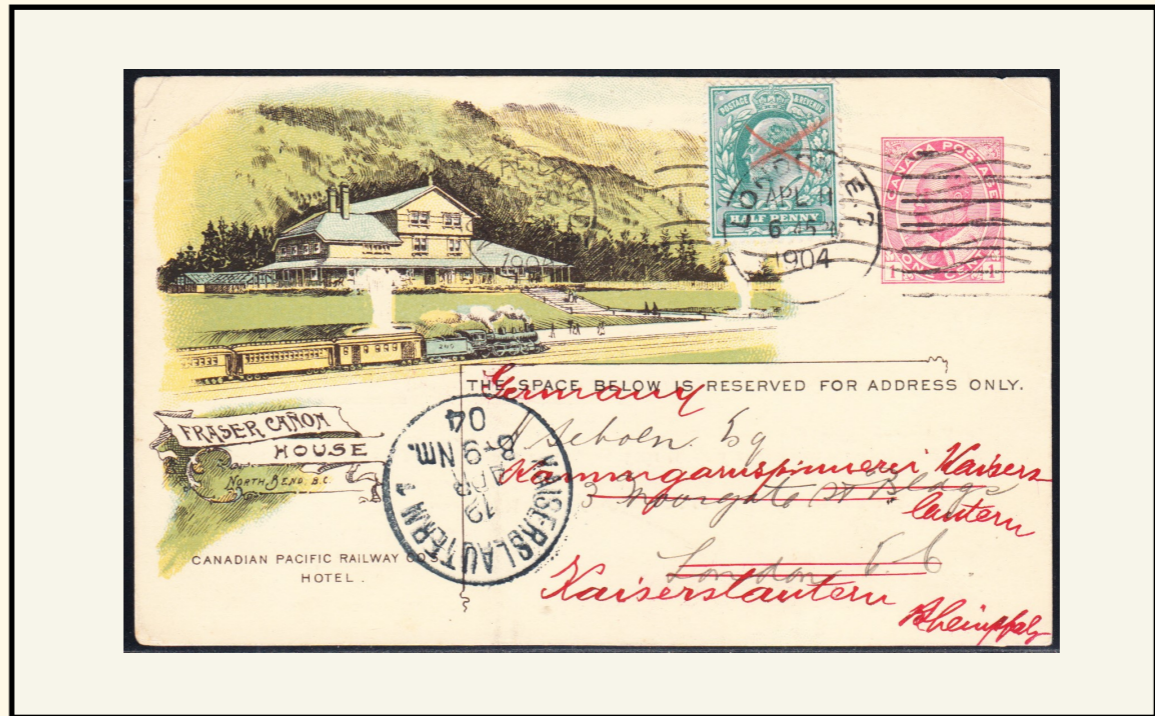 POSTAGE & REVENUE
HALF PENNY
CANADA POSTAGE
1 ONE CENT 1
LONDON E.C
APL 11
6 15
1904
1904
THE SPACE BELOW IS RESERVED FOR ADDRESS ONLY.
Germany
Esq
Kammgarnspinnerei Kaisers
lautern
3 Moorgate St Bldgs
London E.C
Kaiserslautern
Rheinpfalz
FRASER CAÑON
HOUSE
NORTH BEND, B.C.
CANADIAN PACIFIC RAILWAY CO'S
HOTEL.
KAISERSLAUTERN 1
12
APR
8-9 Nm.
04